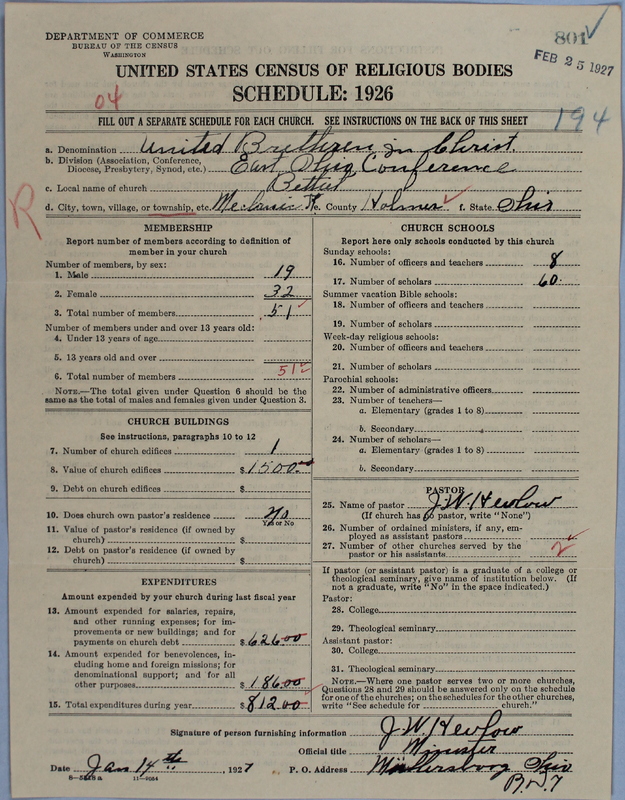 DEPARTMENT OF COMMERCE
BUREAU OF THE CENSUS
WASHINGTON
801
FEB 25 1927
UNITED STATES CENSUS OF RELIGIOUS BODIES
SCHEDULE: 1926
04
194
FILL OUT A SEPARATE SCHEDULE FOR EACH CHURCH. SEE INSTRUCTIONS ON THE BACK OF THIS SHEET
a. Denomination United Brethren in Christ
b. Division (Association, Conference, Diocese, Presbytery, Synod, etc.) East Ohio Conference
c. Local name of church
d. City, town, village, or township, etc. e. County Holmes f. State Ohio
R
MEMBERSHIP
Report number of members according to definition of
member in your church
Number of members, by sex:
1. Male 19
2. Female 32
3. Total number of members 51
Number of members under and over 13 years old:
4. Under 13 years of age
5. 13 years old and over
6. Total number of members 51
NOTE.—The total given under Question 6 should be
the same as the total of males and females given under Question 3.
CHURCH BUILDINGS
See instructions, paragraphs 10 to 12
7. Number of church edifices 1
8. Value of church edifices $1500.00
9. Debt on church edifices $
10. Does church own pastor's residence no
Yes or No
11. Value of pastor's residence (if owned by
church) $
12. Debt on pastor's residence (if owned by
church) $
EXPENDITURES
Amount expended by your church during last fiscal year
13. Amount expended for salaries, repairs,
and other running expenses; for im-
provements or new buildings; and for
payments on church debt $626.00
14. Amount expended for benevolences, in-
cluding home and foreign missions; for
denominational support; and for all
other purposes $186.00
15. Total expenditures during year $812.00
CHURCH SCHOOLS
Report here only schools conducted by this church
Sunday schools:
16. Number of officers and teachers 8
17. Number of scholars 60.
Summer vacation Bible schools:
18. Number of officers and teachers
19. Number of scholars
Week-day religious schools:
20. Number of officers and teachers
21. Number of scholars
Parochial schools:
22. Number of administrative officers
23. Number of teachers—
a. Elementary (grades 1 to 8)
b. Secondary
24. Number of scholars—
a. Elementary (grades 1 to 8)
b. Secondary
PASTOR
25. Name of pastor J. W.
(If church has no pastor, write "None")
26. Number of ordained ministers, if any, em-
ployed as assistant pastors
27. Number of other churches served by the
pastor or his assistants 2
If pastor (or assistant pastor) is a graduate of a college or
theological seminary, give name of institution below. (If
not a graduate, write "No" in the space indicated.)
Pastor:
28. College
29. Theological seminary
Assistant pastor:
30. College
31. Theological seminary
NOTE.—Where one pastor serves two or more churches,
Questions 28 and 29 should be answered only on the schedule
for one of the churches; on the schedules for the other churches,
write "See schedule for church."
Signature of person furnishing information J. W.
Official title Minister
Date Jan 14th, 1927 P. O. Address Millersburg Ohio
8-5218a 11-9054